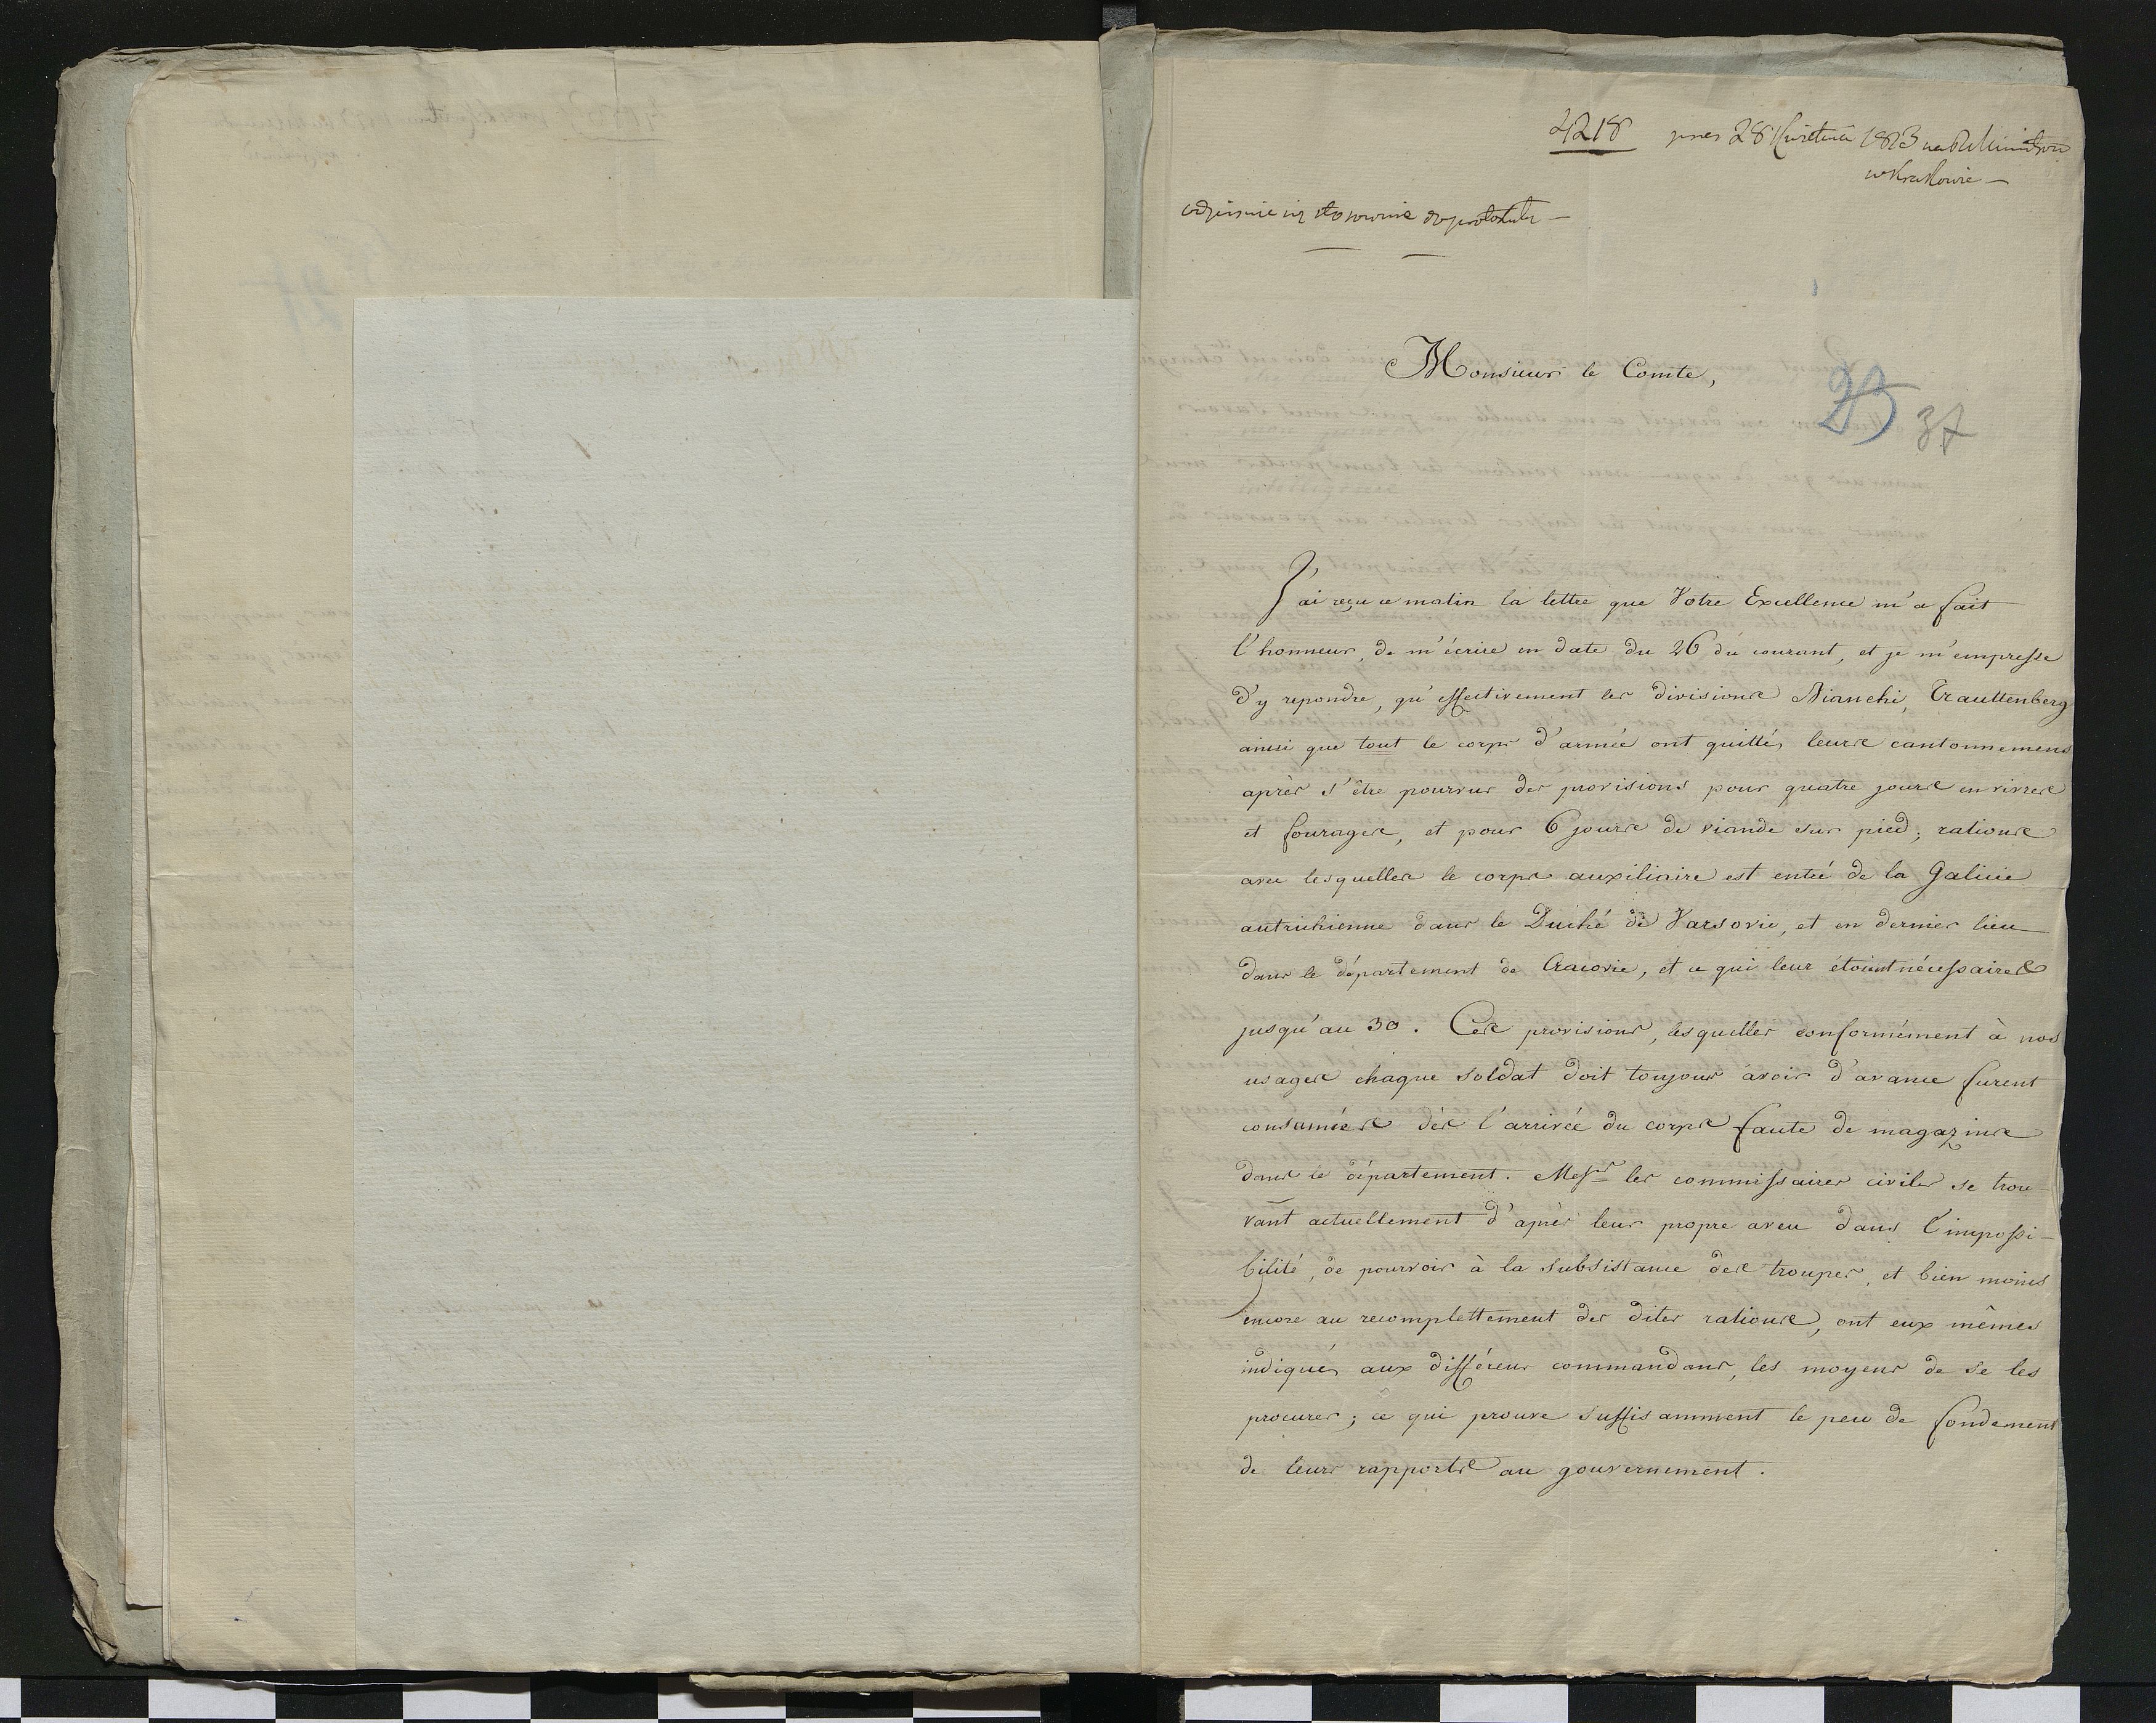 4218 prez 28 Kwietnia 1813 na R Ministrow
w Krakowie —
odpisanie się stosownie do protokułu —
Monsieur le Comte,
25 37
J'ai reçu ce matin la lettre que Votre Excellence m'a fait
l'honneur, de m'écrire en date du 26 du courant, et je m'empresse
d'y repondre, qu'effectivement les divisions Bianchi, Trauttenberg
ainsi que tout le corps d'armée ont quittés leurs cantonnemens
après s'être pourvus des provisions pour quatre jours en vivres
et fourages, et pour 6 jours de viande sur pied; rations
avec lesquelles le corps auxiliaire est entré de la Galicie
autrichienne dans le Duché de Varsovie, et en dernier lieu
dans le département de Cracovie, et ce qui leur étoient nécessaires
jusqu'au 30. Ces provisions, lesquelles conformément à nos
usages chaque soldat doit toujours avoir d'avance furent
consumées dès l'arrivée du corps faute de magazins
dans le département. Messrs les commissaires civiles se trou-
vant actuellement d'après leur propre aveu dans l'impossi-
bilité, de pourvoir à la subsistance des troupes, et bien moins
encore au recomplettement des dites rations, ont eux mêmes
indiqués aux différens commandans, les moyens de se les
procurer; ce qui prouve suffisamment le peu de fondement
de leurs rapports au gouvernement.